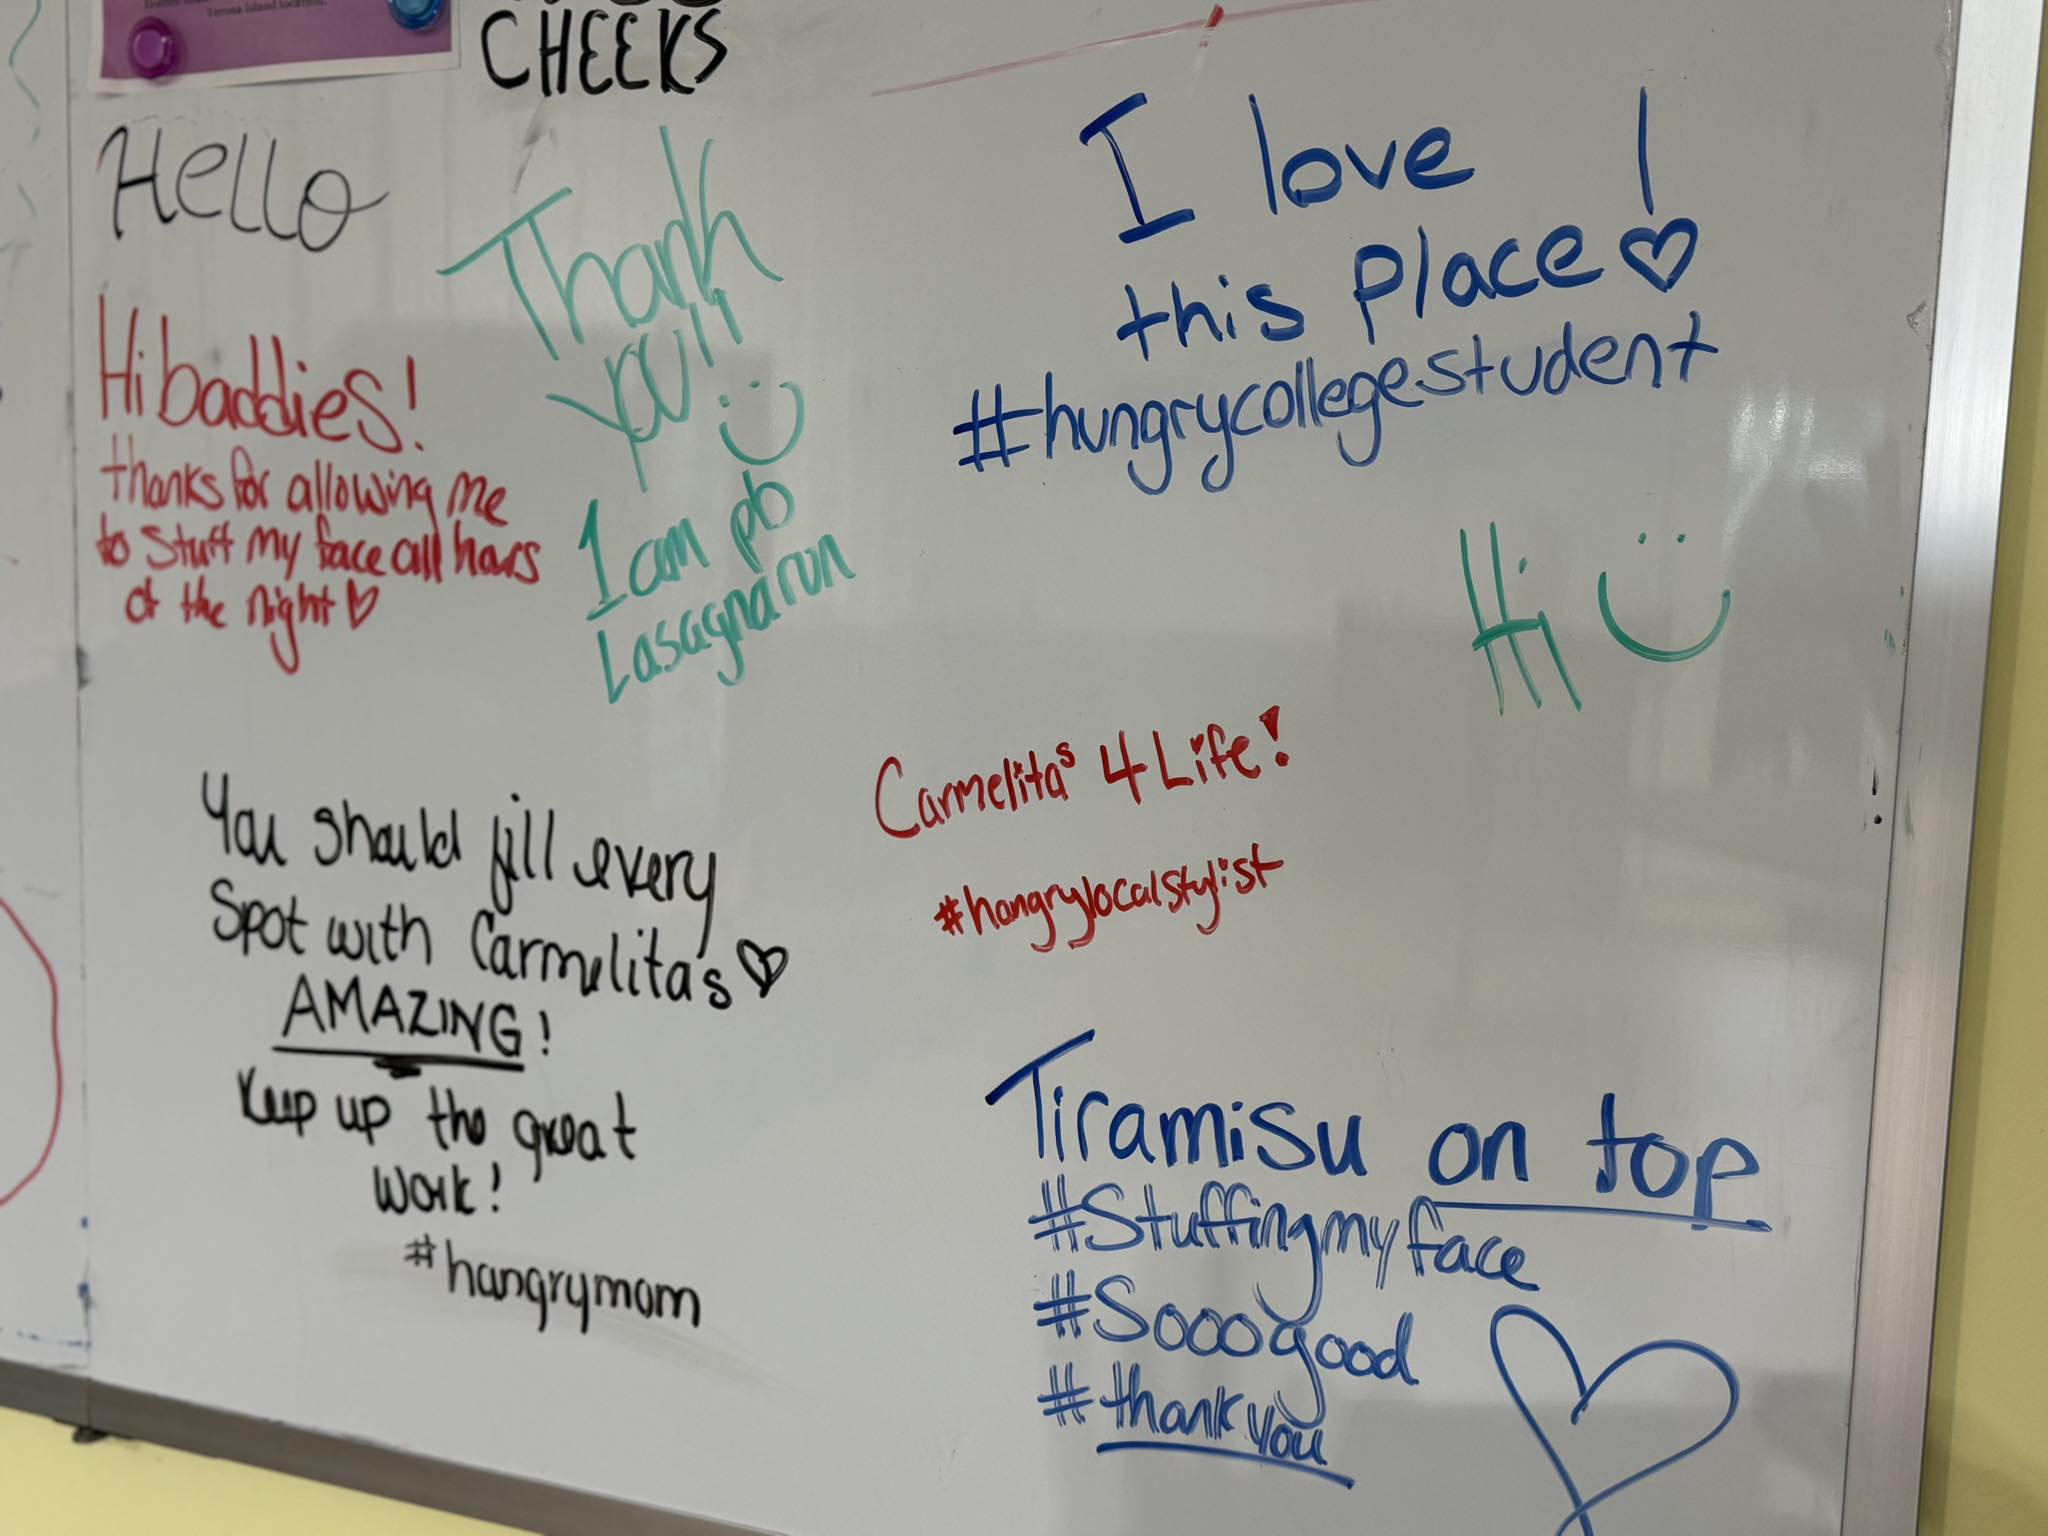 Verona Island location.
CHEEKS
Hello
Thank
you!!
I am pb
Lasagna run
Hi baddies!
thanks for allowing me
to stuff my face all hours
of the night
I love !
this place
#hungrycollegestudent
Hi
Carmelitas 4 Life!
#hangrylocalstylist
You should fill every
Spot with Carmelitas
AMAZING!
Keep up the great
work!
#hangrymom
Tiramisu on top
#Stuffingmyface
#Sooogood
#thankyou